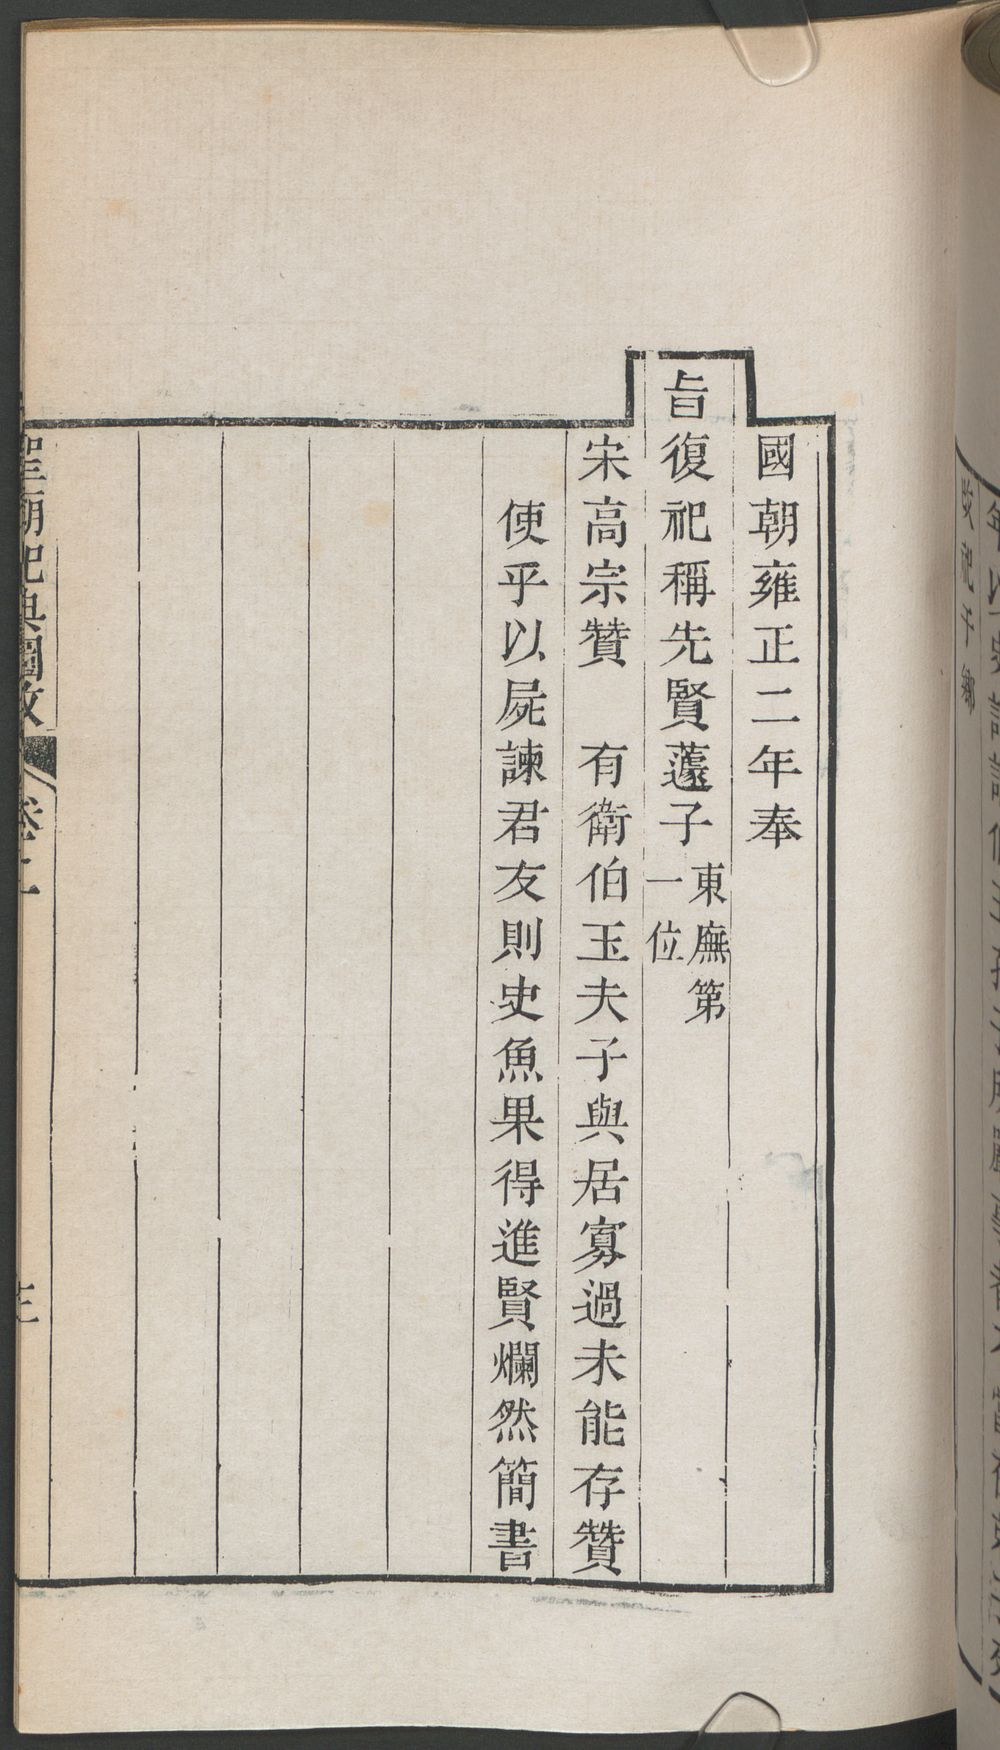 國朝雍正二年奉
旨復祀稱先賢蘧子東廡第一位
宋高宗贊　有衛伯玉夫子與居寡過未能存贊
使乎以屍諫君友則史魚果得進賢爛然簡書
聖廟祀典圖攷